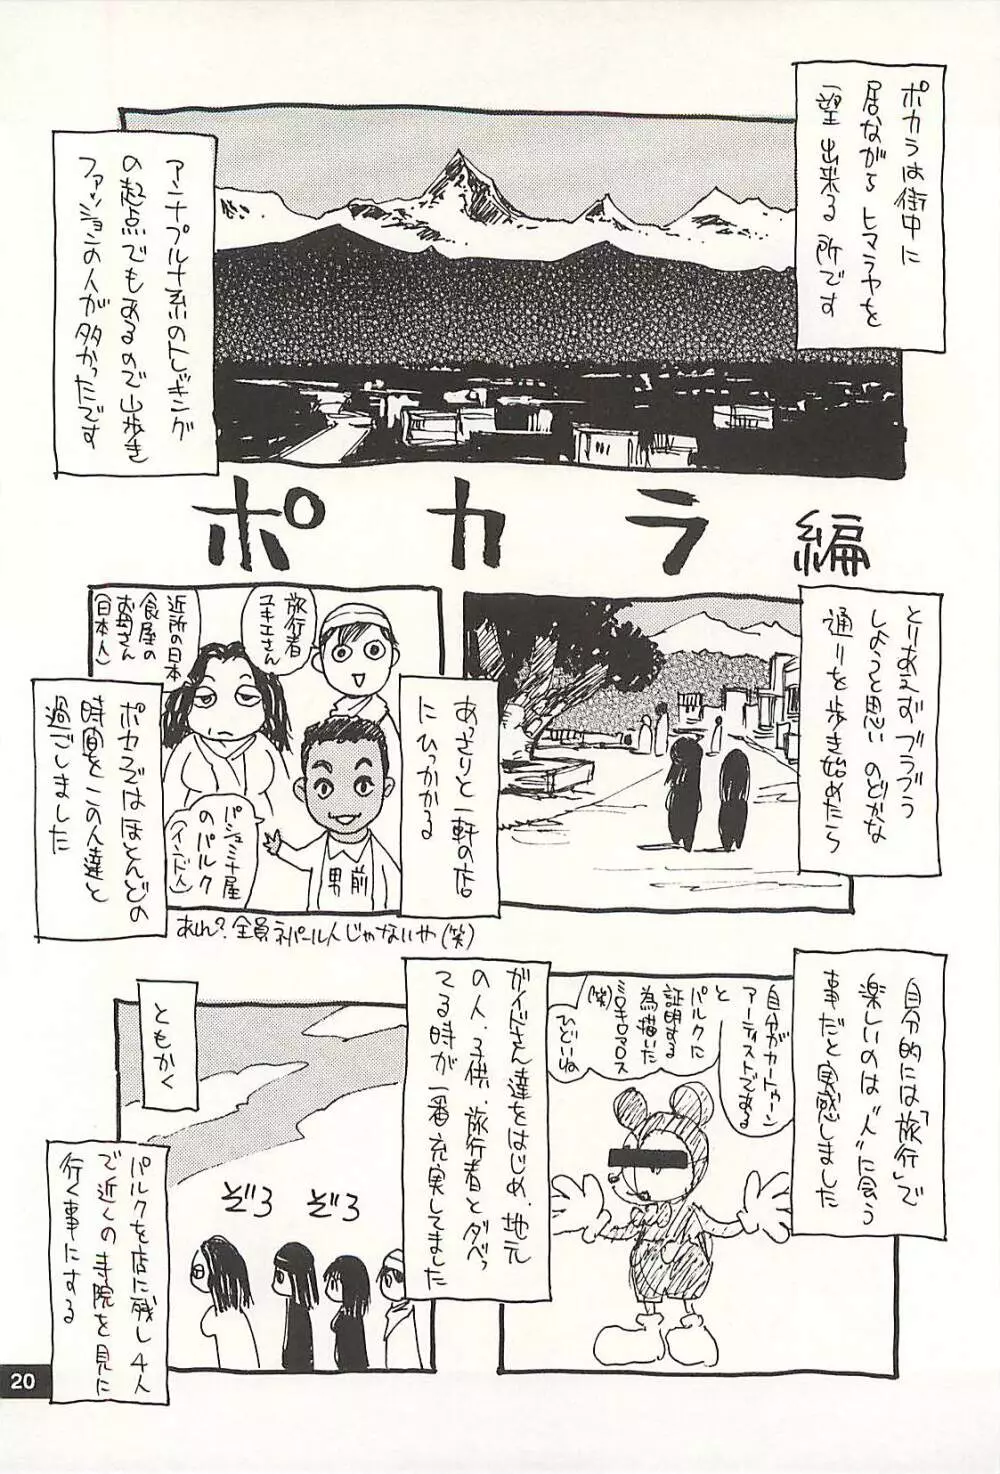 ポカラは街中に
居ながらヒマラヤを
一望出来る所です
アンナプルナ系のトレッキング
の起点でもあるので山歩き
ファッションの人が多かったです
ポカラ編
とりあえずブラブラ
しようと思いのどかな
通りを歩き始めたら
あっさりと一軒の店
にひっかかる
旅行者
ユキエさん
近所の日本
食屋の
お母さん
(日本人)
パシュミナ屋
のパルク
(インド人)
男前
ポカラではほとんどの
時間をこの人達と
過ごしました
あれ?全員ネパール人じゃないや(笑)
自分的には「旅行」で
楽しいのは“人”に会う
事だと実感しました
自分がカートゥーン
アーティストである
と
パルクに
証明する
為描いた
ミロキロアロス
(笑)
ひどいね
ガイドさん達をはじめ、地元
の人、子供、旅行者とダベっ
てる時が一番充実してました
ともかく
ぞろ
ぞろ
パルクを店に残し4人
で近くの寺院を見に
行く事にする
20